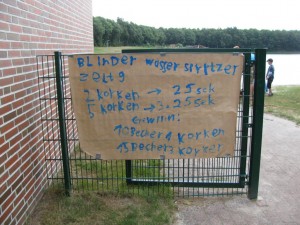 BLinder wasser spritzer
2 korken → 25sck
5 korken → 3.25sck
Gewinn:
10 Becher 1 korken
15 Becher 2 korken